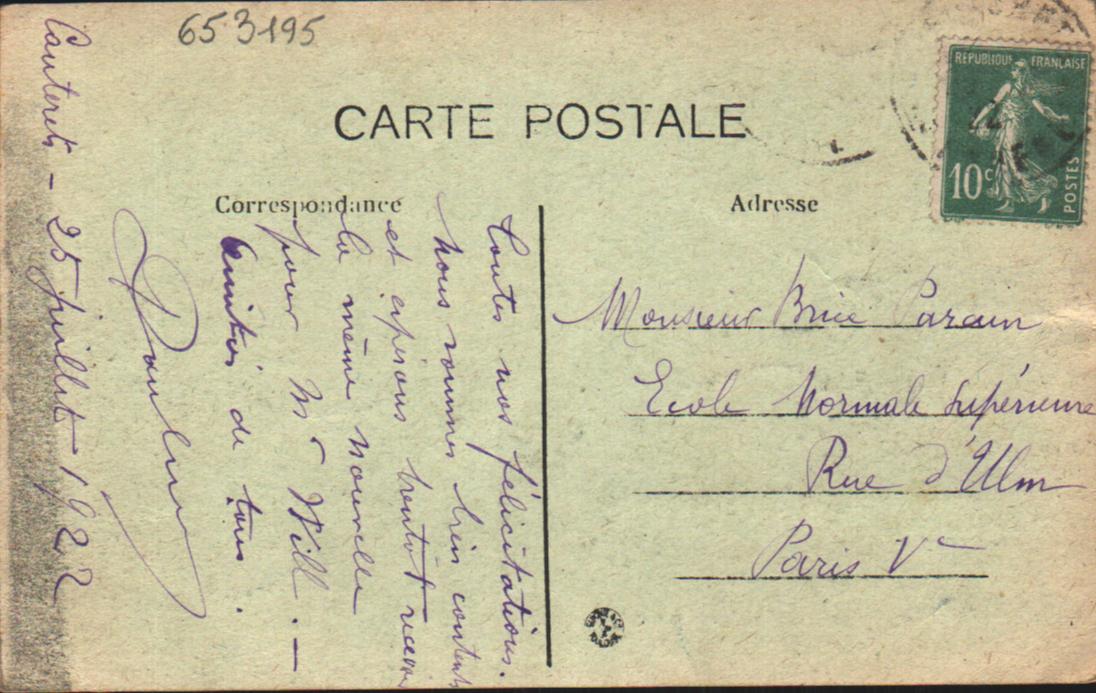 653195
CARTE POSTALE
Correspondance
Adresse
REPUBLIQUE FRANÇAISE
10c
POSTES
Cauterets - 25 juillet 1922
Toutes nos félicitations.
Nous sommes bien contents
et espérons bientôt recevoir
la même nouvelle
pour Mr Will. —
Amitiés de tous.
Monsieur Brice Parain
Ecole Normale Supérieure
Rue d'Ulm
Paris Ve